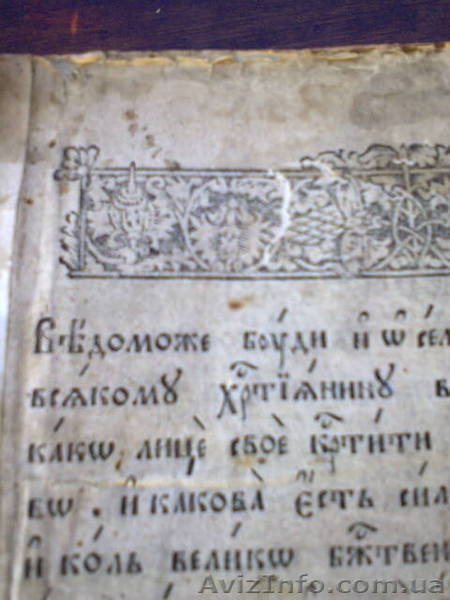 Вѣ́доможе боу́ди и҆ ѡ҆ се́л
всѧ́кому хрⷭ҇тїѧ́нину в
ка́кѡ, лицѐ своѐ крⷭ҇ти́ти
вѡ . и҆ какова̀ є҆́сть си́л
и҆ ко́ль вели́кѡ бжⷭ҇твен
AvizInfo.com.ua